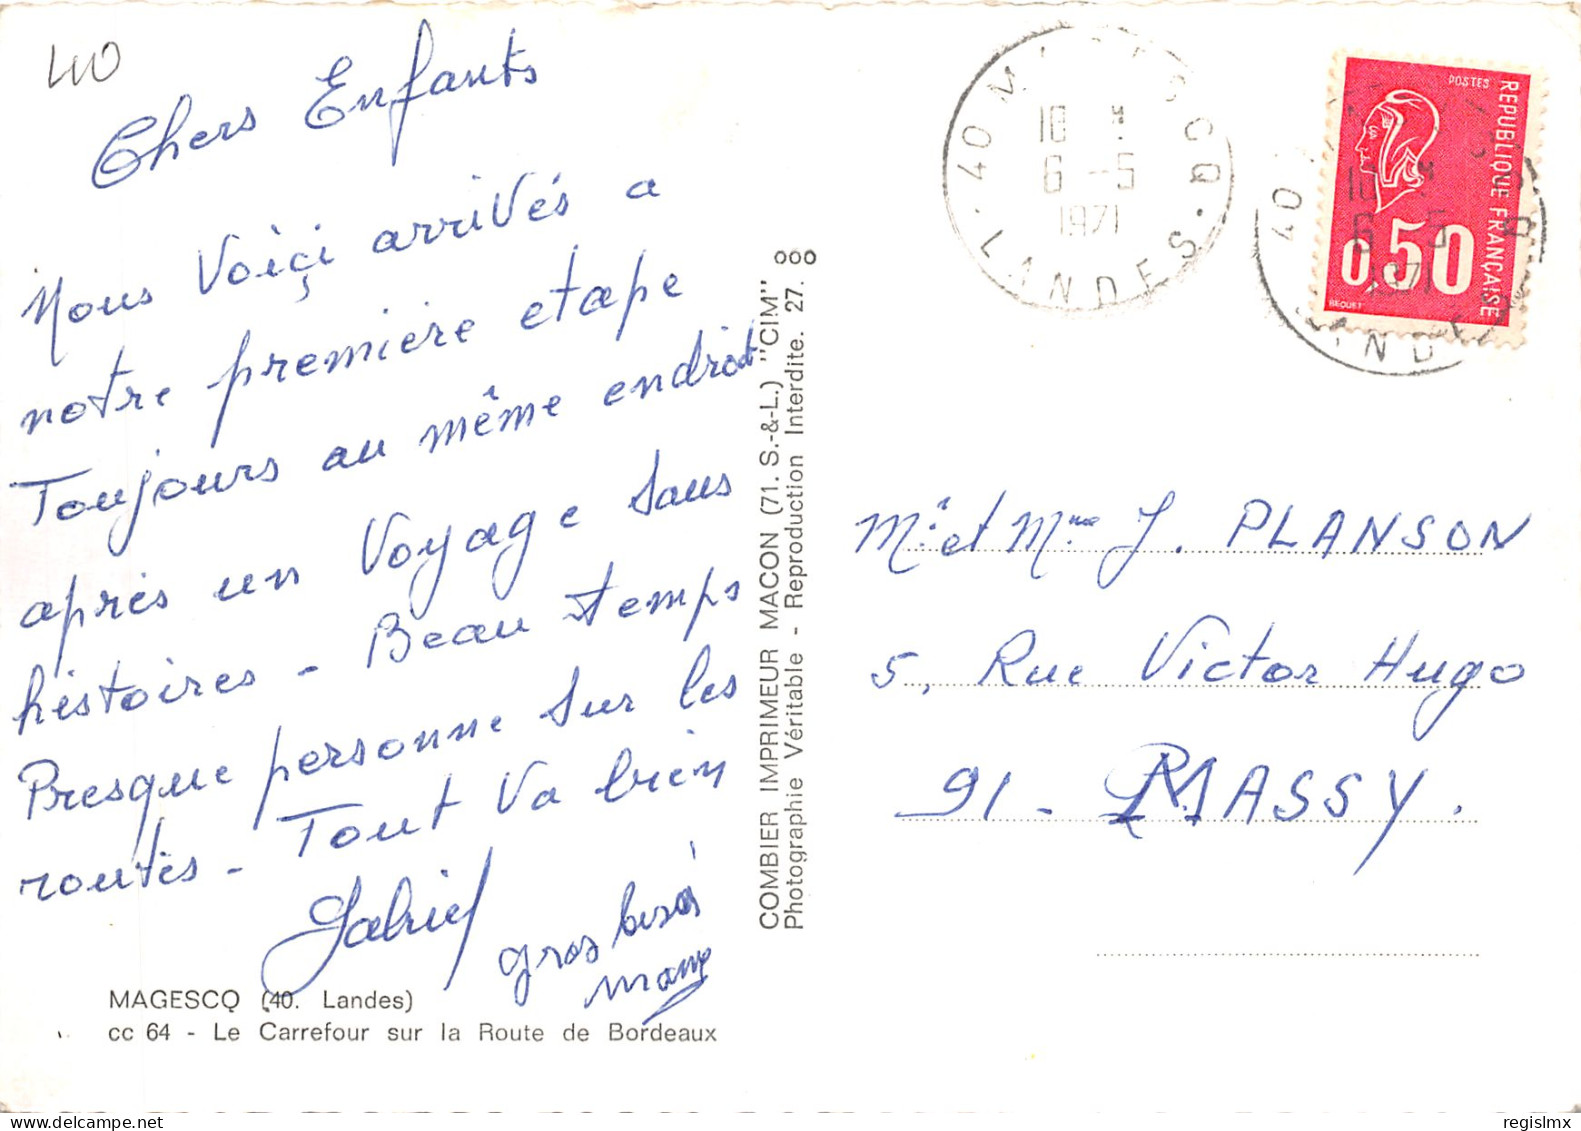 40
Chers Enfants
Nous Voiçi arrivés a
notre premiere etape
Toujours au même endroit
après un Voyage sans
histoires - Beau temps
Presque personne sur les
routes - Tout va bien
Gabriel
gros
MAGESCQ (40. Landes)
cc 64 - Le Carrefour sur la Route de Bordeaux
COMBIER IMPRIMEUR MACON (71. S.-&-L.) "CIM"
Photographie Véritable - Reproduction Interdite. 27.
40 M GCQ
18 H
6 -5
1971
LANDES
POSTES
REPUBLIQUE FRANÇAISE
0,50
BEQUET
40
6 -5
1971
Mr et Mme J. PLANSON
5, Rue Victor Hugo
91 - MASSY.
regislmx